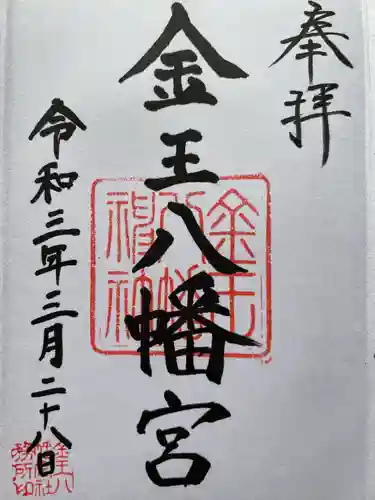 奉拝
金王八幡宮
令和三年三月二十八日